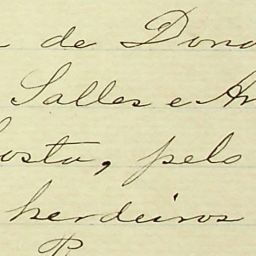 de Dona
Salles e An
osta, pelo
herdeiros